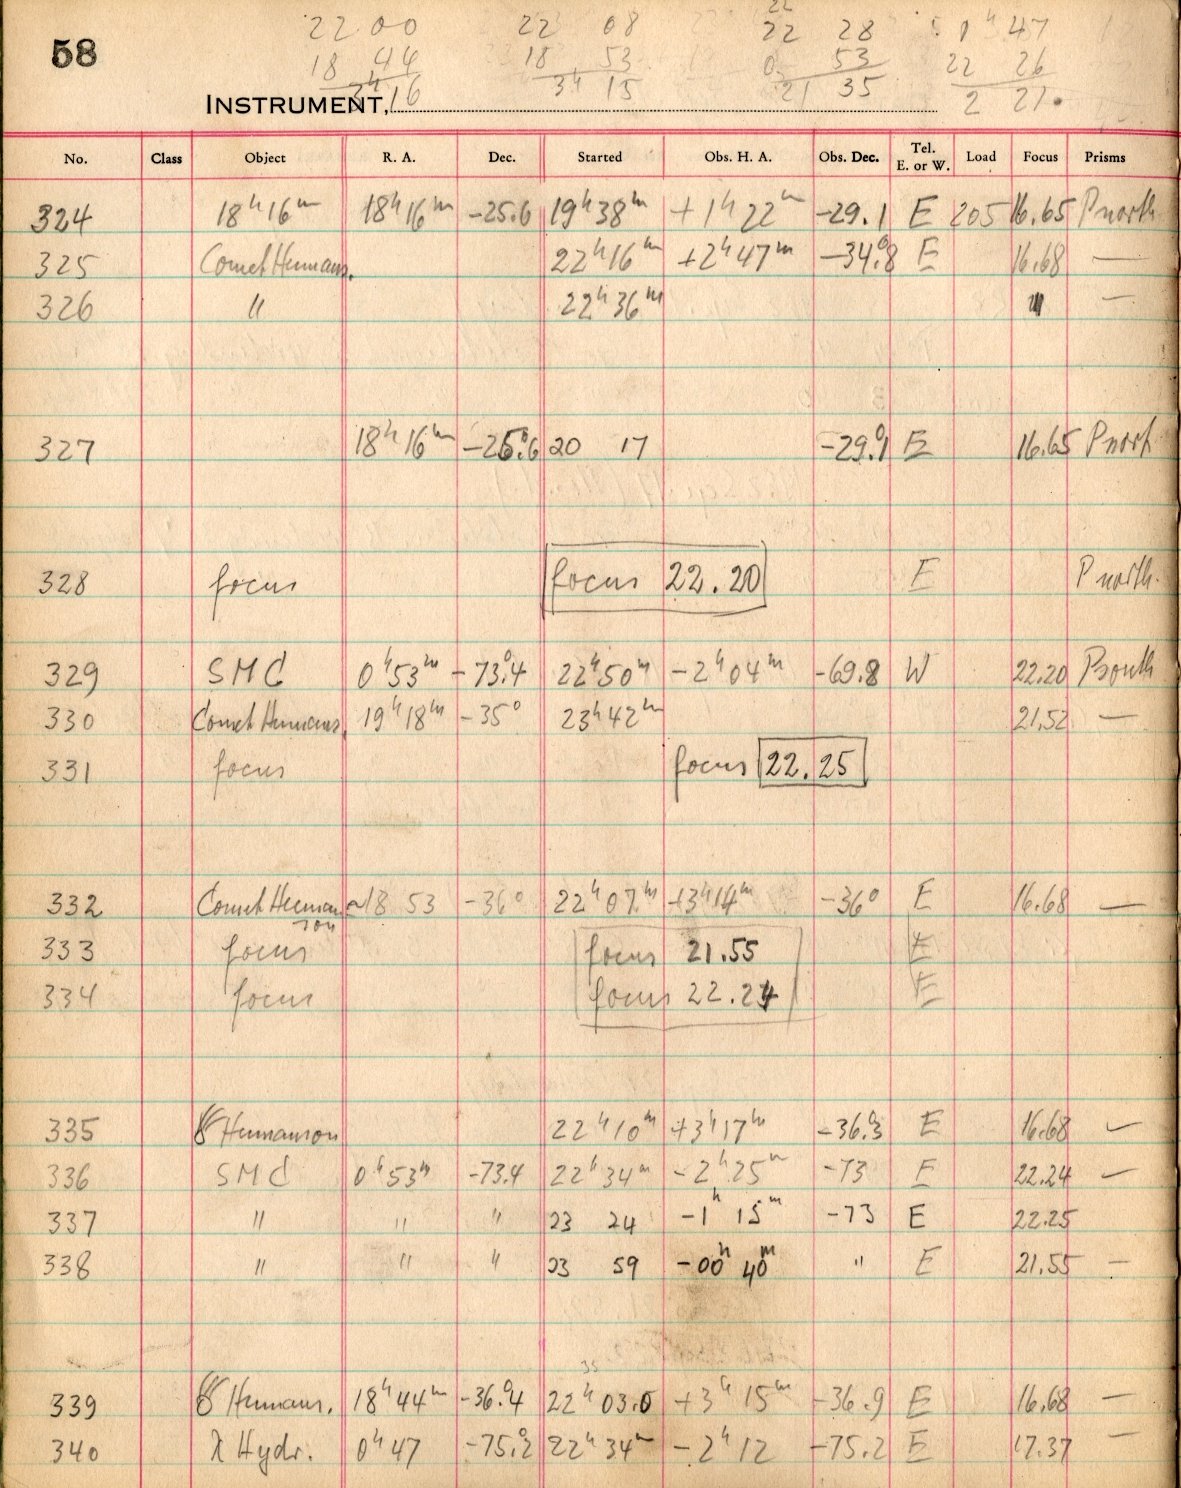 22 00 22 08 22 22 28 0ʰ 47
58 18 44 18 53 0 53 22 26
3ʰ 16 3ʰ 15 21 35 2 21.
INSTRUMENT,
No. Class Object R. A. Dec. Started Obs. H. A. Obs. Dec. Tel. E. or W. Load Focus Prisms
324 18ʰ16ᵐ 18ʰ16ᵐ -25.6 19ʰ38ᵐ +1ʰ22ᵐ -29.1 E 205 16.65 P north
325 Comet Humans. 22ʰ16ᵐ +2ʰ47ᵐ -34.°8 E 16.68 —
326 " 22ʰ36ᵐ " —
327 18ʰ16ᵐ -25.°6 20 17 -29.°1 E 16.65 P nort
328 focus focus 22.20 E P north.
329 SMC 0ʰ53ᵐ -73.°4 22ʰ50ᵐ -2ʰ04ᵐ -69.8 W 22.20 P south
330 Comet Humans. 19ʰ18ᵐ -35° 23ʰ42ᵐ 21.52 —
331 focus focus 22.25
332 Comet Human ~18 53 -36° 22ʰ07.ᵐ +3ʰ14ᵐ -36° E 16.68 —
son
333 focus focus 21.55 E
334 focus focus 22.24 E
335 Humanson 22ʰ10ᵐ +3ʰ17ᵐ -36.°3 E 16.68 —
336 SMC 0ʰ53ᵐ -73.4 22ʰ34ᵐ -2ʰ25ᵐ -73 E 22.24 —
337 " " " 23 24 -1ʰ 15ᵐ -73 E 22.25
338 " " " 23 59 -00ʰ 40ᵐ " E 21.55 —
35
339 Humans. 18ʰ44ᵐ -36.°4 22ʰ03.0 +3ʰ 15ᵐ -36.9 E 16.68 —
340 λ Hydr. 0ʰ47 -75.°2 22ʰ34ᵐ -2ʰ12 -75.2 E 17.37 —